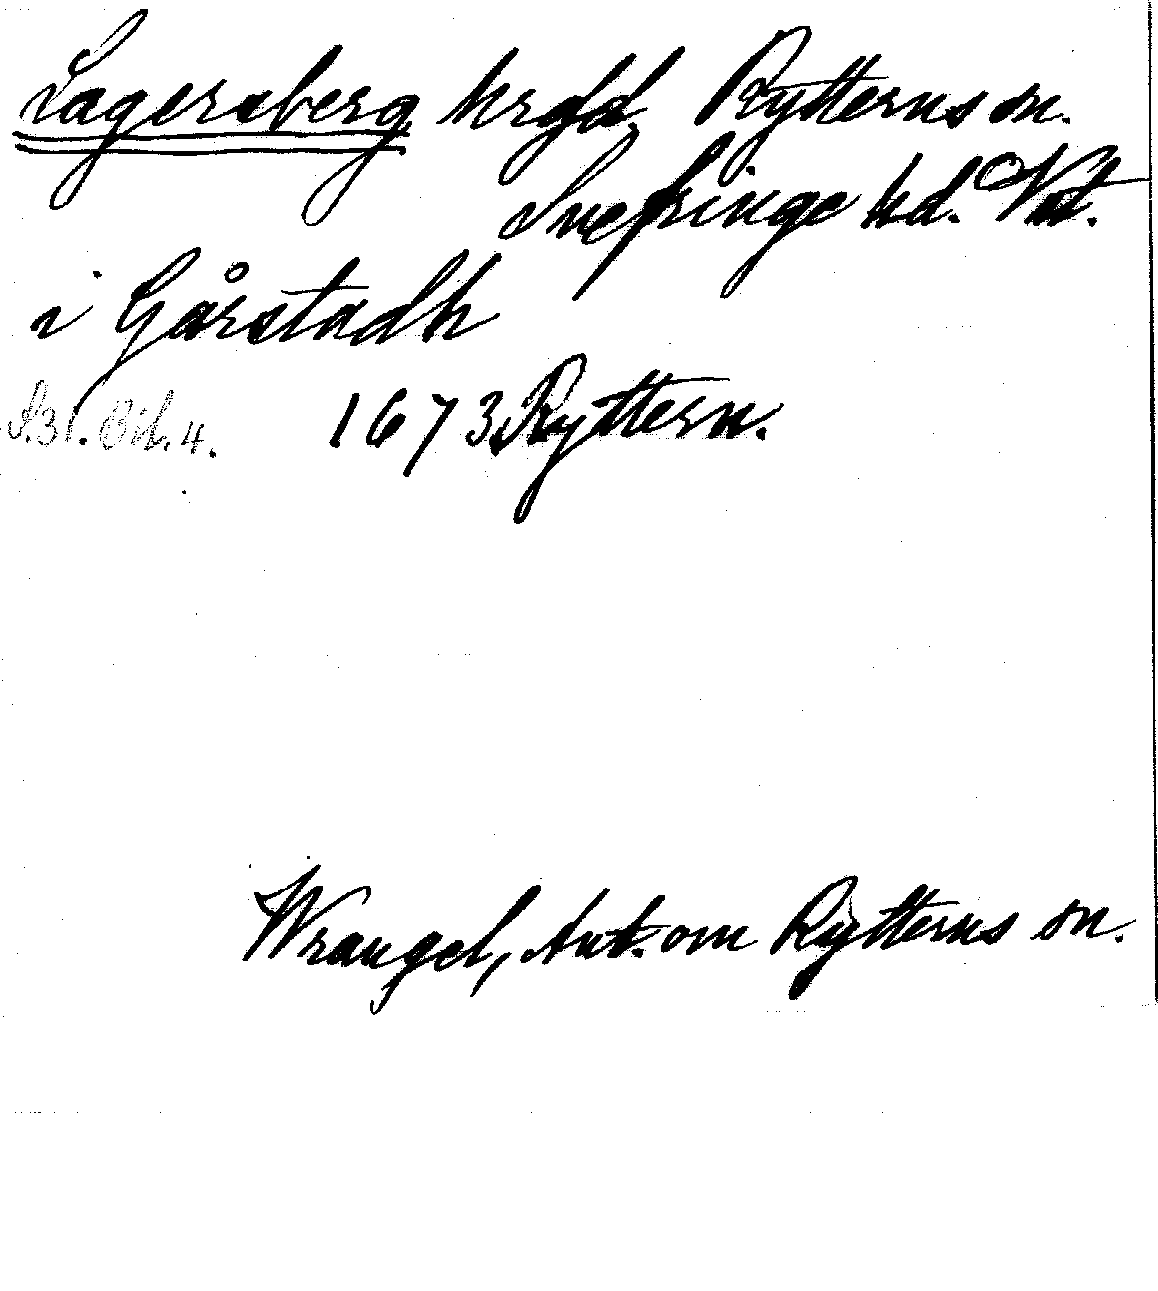 Lagersberg hrgd. Rytterns sn.
Snefringe hd. Vstm.
i Gårstadh
S. 31. Bil. 4. 1673 Ryttern.
Wrangel, Ant. om Rytterns sn.